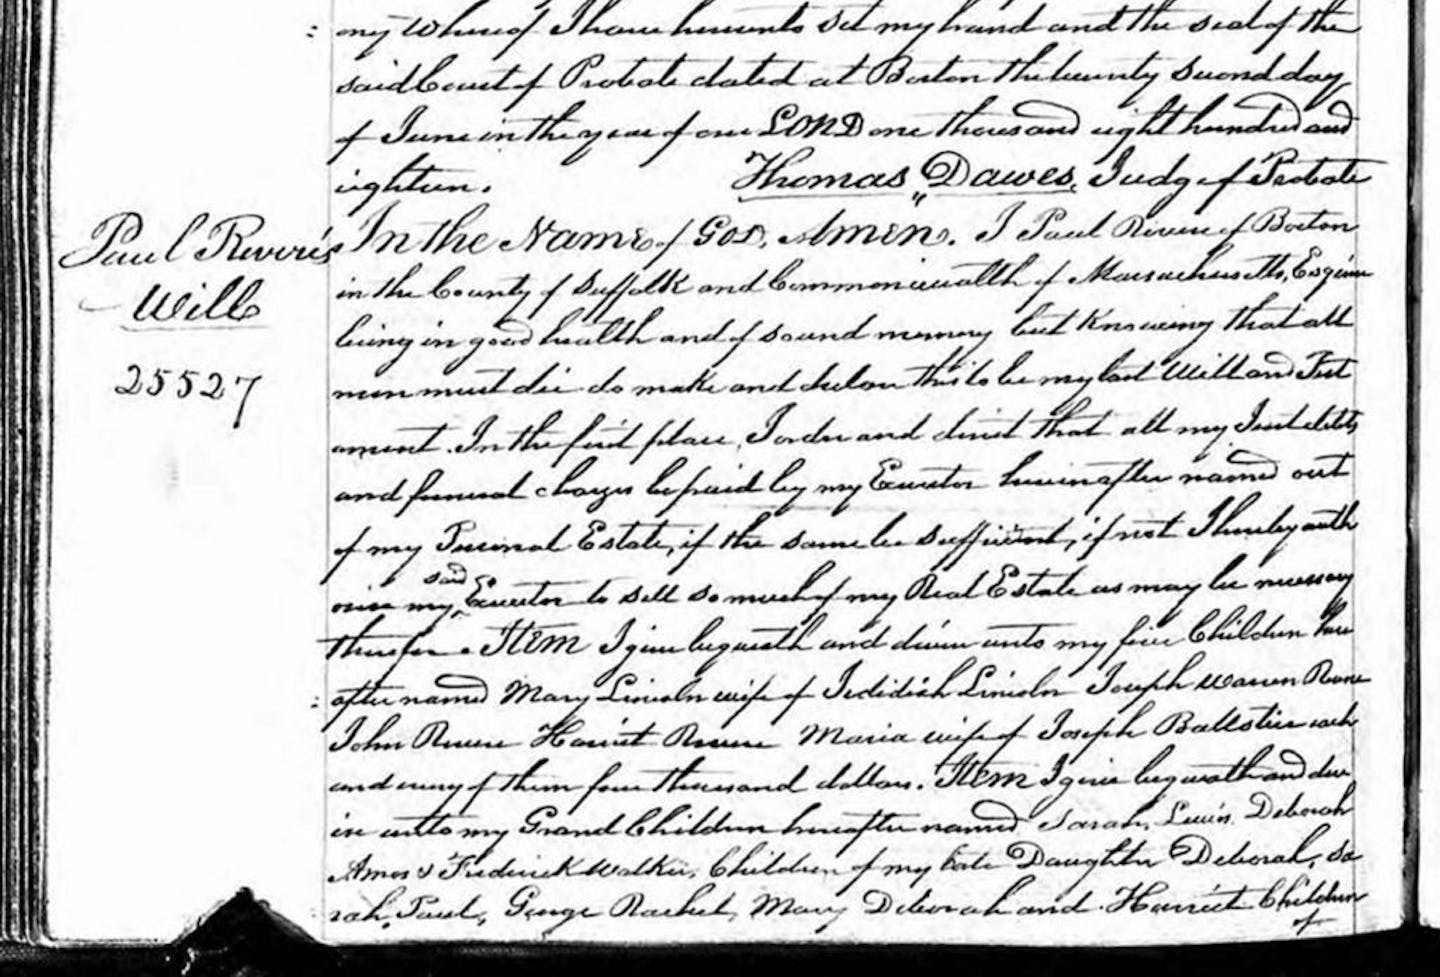 ony whereof I have hereunto set my hand and the seal of the
said Court of Probate dated at Boston the twenty second day
of June in the year of our LORD one thousand eight hundred and
eighteen. Thomas Dawes, Judge of Probate
Paul Revere's
Will
25527
In the Name of GOD, Amen. I Paul Revere of Boston
in the County of Suffolk and Commonwealth of Massachusetts, Esquire
being in good health and of sound memory but knowing that all
men must die do make and declare this to be my last Will and Test
ament. In the first place, I order and direct that all my Just debts
and funeral charges be paid by my Executor hereinafter named out
of my Personal Estate, if the same be sufficient, if not I hereby auth
orise my said Executor to sell so much of my Real Estate as may be necessary
therefor. Item I give bequeath and devise unto my five Children here
after named Mary Lincoln wife of Jedidiah Lincoln Joseph Warren Revere
John Revere Harriet Revere Maria wife of Joseph Balestier each
and every of them four thousand dollars. Item I give bequeath and dev
ise unto my Grand Children hereafter named Sarah, Lewis, Deborah
Amos & Frederick Walker, Children of my late Daughter Deborah, Sa
rah, Paul, George Rachel, Mary Deborah and Harriet Children
of